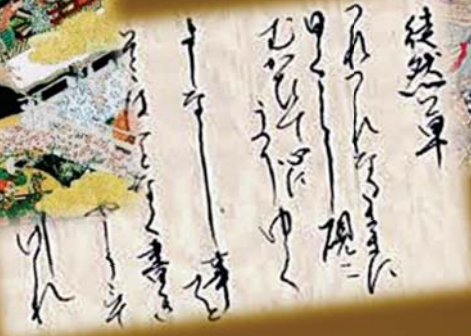 徒然草
つれつれなるままに
日くらし硯に
むかひて心に
うつりゆく
よしなし事を
そこはかとなく書き
つくれ